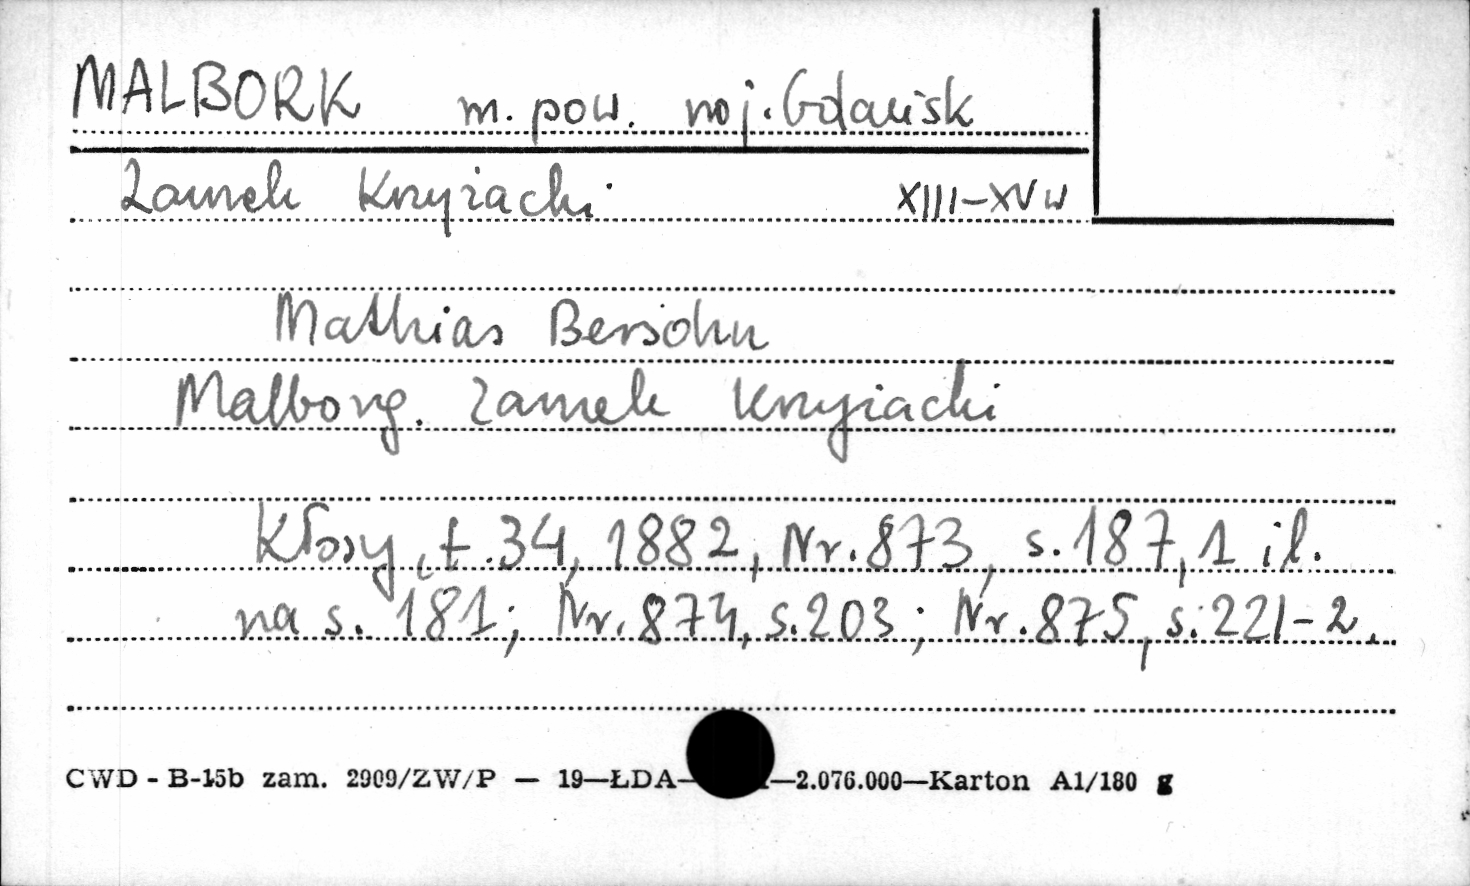 MALBORK m. pow. woj. Gdańsk
Zamek Krzyżacki XIII-XV w
Mathias Bersohn
Malborg. Zamek Krzyżacki
Kłosy, t. 34, 1882, Nr. 873, s. 187, 1 il.
na s. 181; Nr. 874, s. 203; Nr. 875, s. 221-2.
CWD - B-15b zam. 2909/ZW/P — 19—ŁDA— —2.076.000—Karton A1/180 g